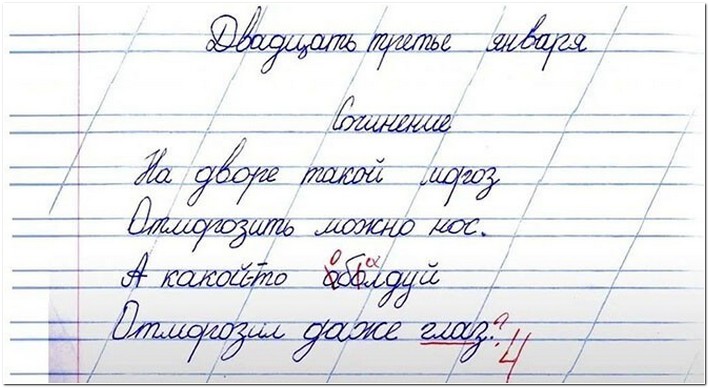 Двадцать третье января
Сочинение
На дворе такой мороз
Отморозить можно нос.
А какой-то аболдуй
Отморозил даже глаз.?
4